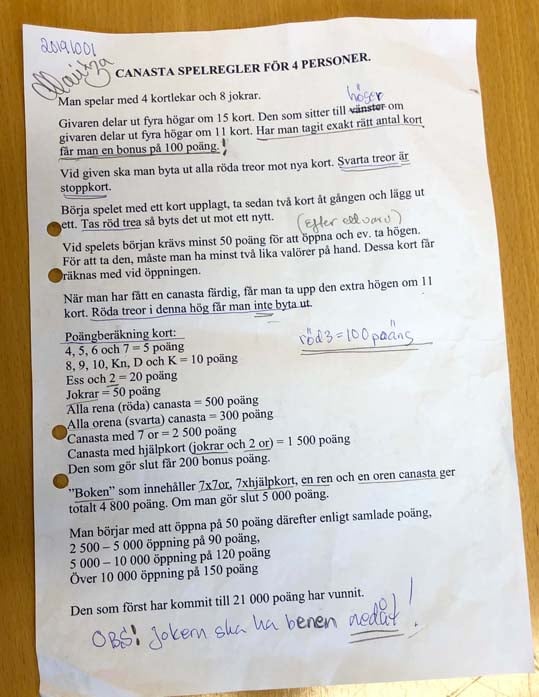 20191001
Maritza
CANASTA SPELREGLER FÖR 4 PERSONER.
Man spelar med 4 kortlekar och 8 jokrar.
höger
Givaren delar ut fyra högar om 15 kort. Den som sitter till vänster om
givaren delar ut fyra högar om 11 kort. Har man tagit exakt rätt antal kort
får man en bonus på 100 poäng.!
Vid given ska man byta ut alla röda treor mot nya kort. Svarta treor är
stoppkort.
Börja spelet med ett kort upplagt, ta sedan två kort åt gången och lägg ut
ett. Tas röd trea så byts det ut mot ett nytt.
(Efter ett varv)
Vid spelets början krävs minst 50 poäng för att öppna och ev. ta högen.
För att ta den, måste man ha minst två lika valörer på hand. Dessa kort får
räknas med vid öppningen.
När man har fått en canasta färdig, får man ta upp den extra högen om 11
kort. Röda treor i denna hög får man inte byta ut.
Poängberäkning kort:
röd 3=100 poäng
4, 5, 6 och 7 = 5 poäng
8, 9, 10, Kn, D och K = 10 poäng
Ess och 2 = 20 poäng
Jokrar = 50 poäng
Alla rena (röda) canasta = 500 poäng
Alla orena (svarta) canasta = 300 poäng
Canasta med 7 or = 2 500 poäng
Canasta med hjälpkort (jokrar och 2 or) = 1 500 poäng
Den som gör slut får 200 bonus poäng.
"Boken" som innehåller 7x7or, 7xhjälpkort, en ren och en oren canasta ger
totalt 4 800 poäng. Om man gör slut 5 000 poäng.
Man börjar med att öppna på 50 poäng därefter enligt samlade poäng,
2 500 – 5 000 öppning på 90 poäng,
5 000 – 10 000 öppning på 120 poäng
Över 10 000 öppning på 150 poäng
Den som först har kommit till 21 000 poäng har vunnit.
OBS! jokern ska ha benen nedåt!